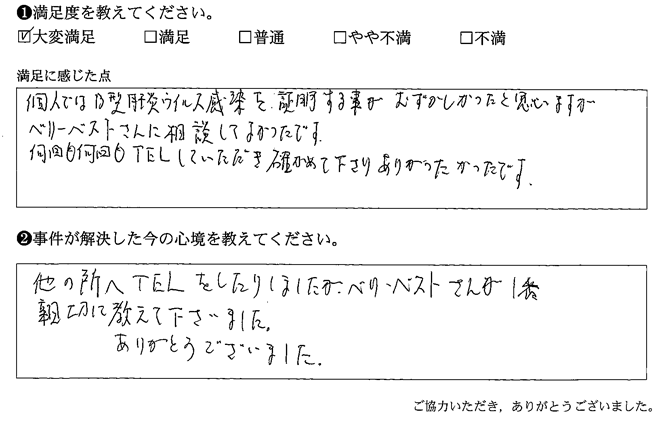 ❶満足度を教えてください。
☑大変満足 □満足 □普通 □やや不満 □不満
満足に感じた点
個人ではB型肝炎ウイルス感染を、証明する事が むずかしかったと思いますが
ベリーベストさんに相談してよかったです。
何回も何回もTELしていただき確かめて下さりありがったかったです。
❷事件が解決した今の心境を教えてください。
他の所へTELをしたりしましたが、ベリーベストさんが1番
親切に教えて下さいました。
ありがとうございました。
ご協力いただき，ありがとうございました。